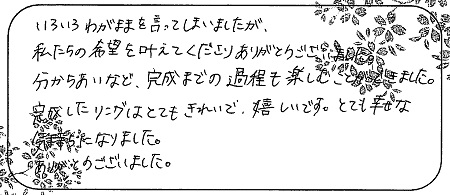 いろいろわがままを言ってしまいましたが、
私たちの希望を叶えてくださりありがとうございました。
分からあいなど、完成までの過程も楽しむことができました。
完成したリングはとてもきれいで、嬉しいです。とても幸せな
気持ちになりました。
ありがとうございました。